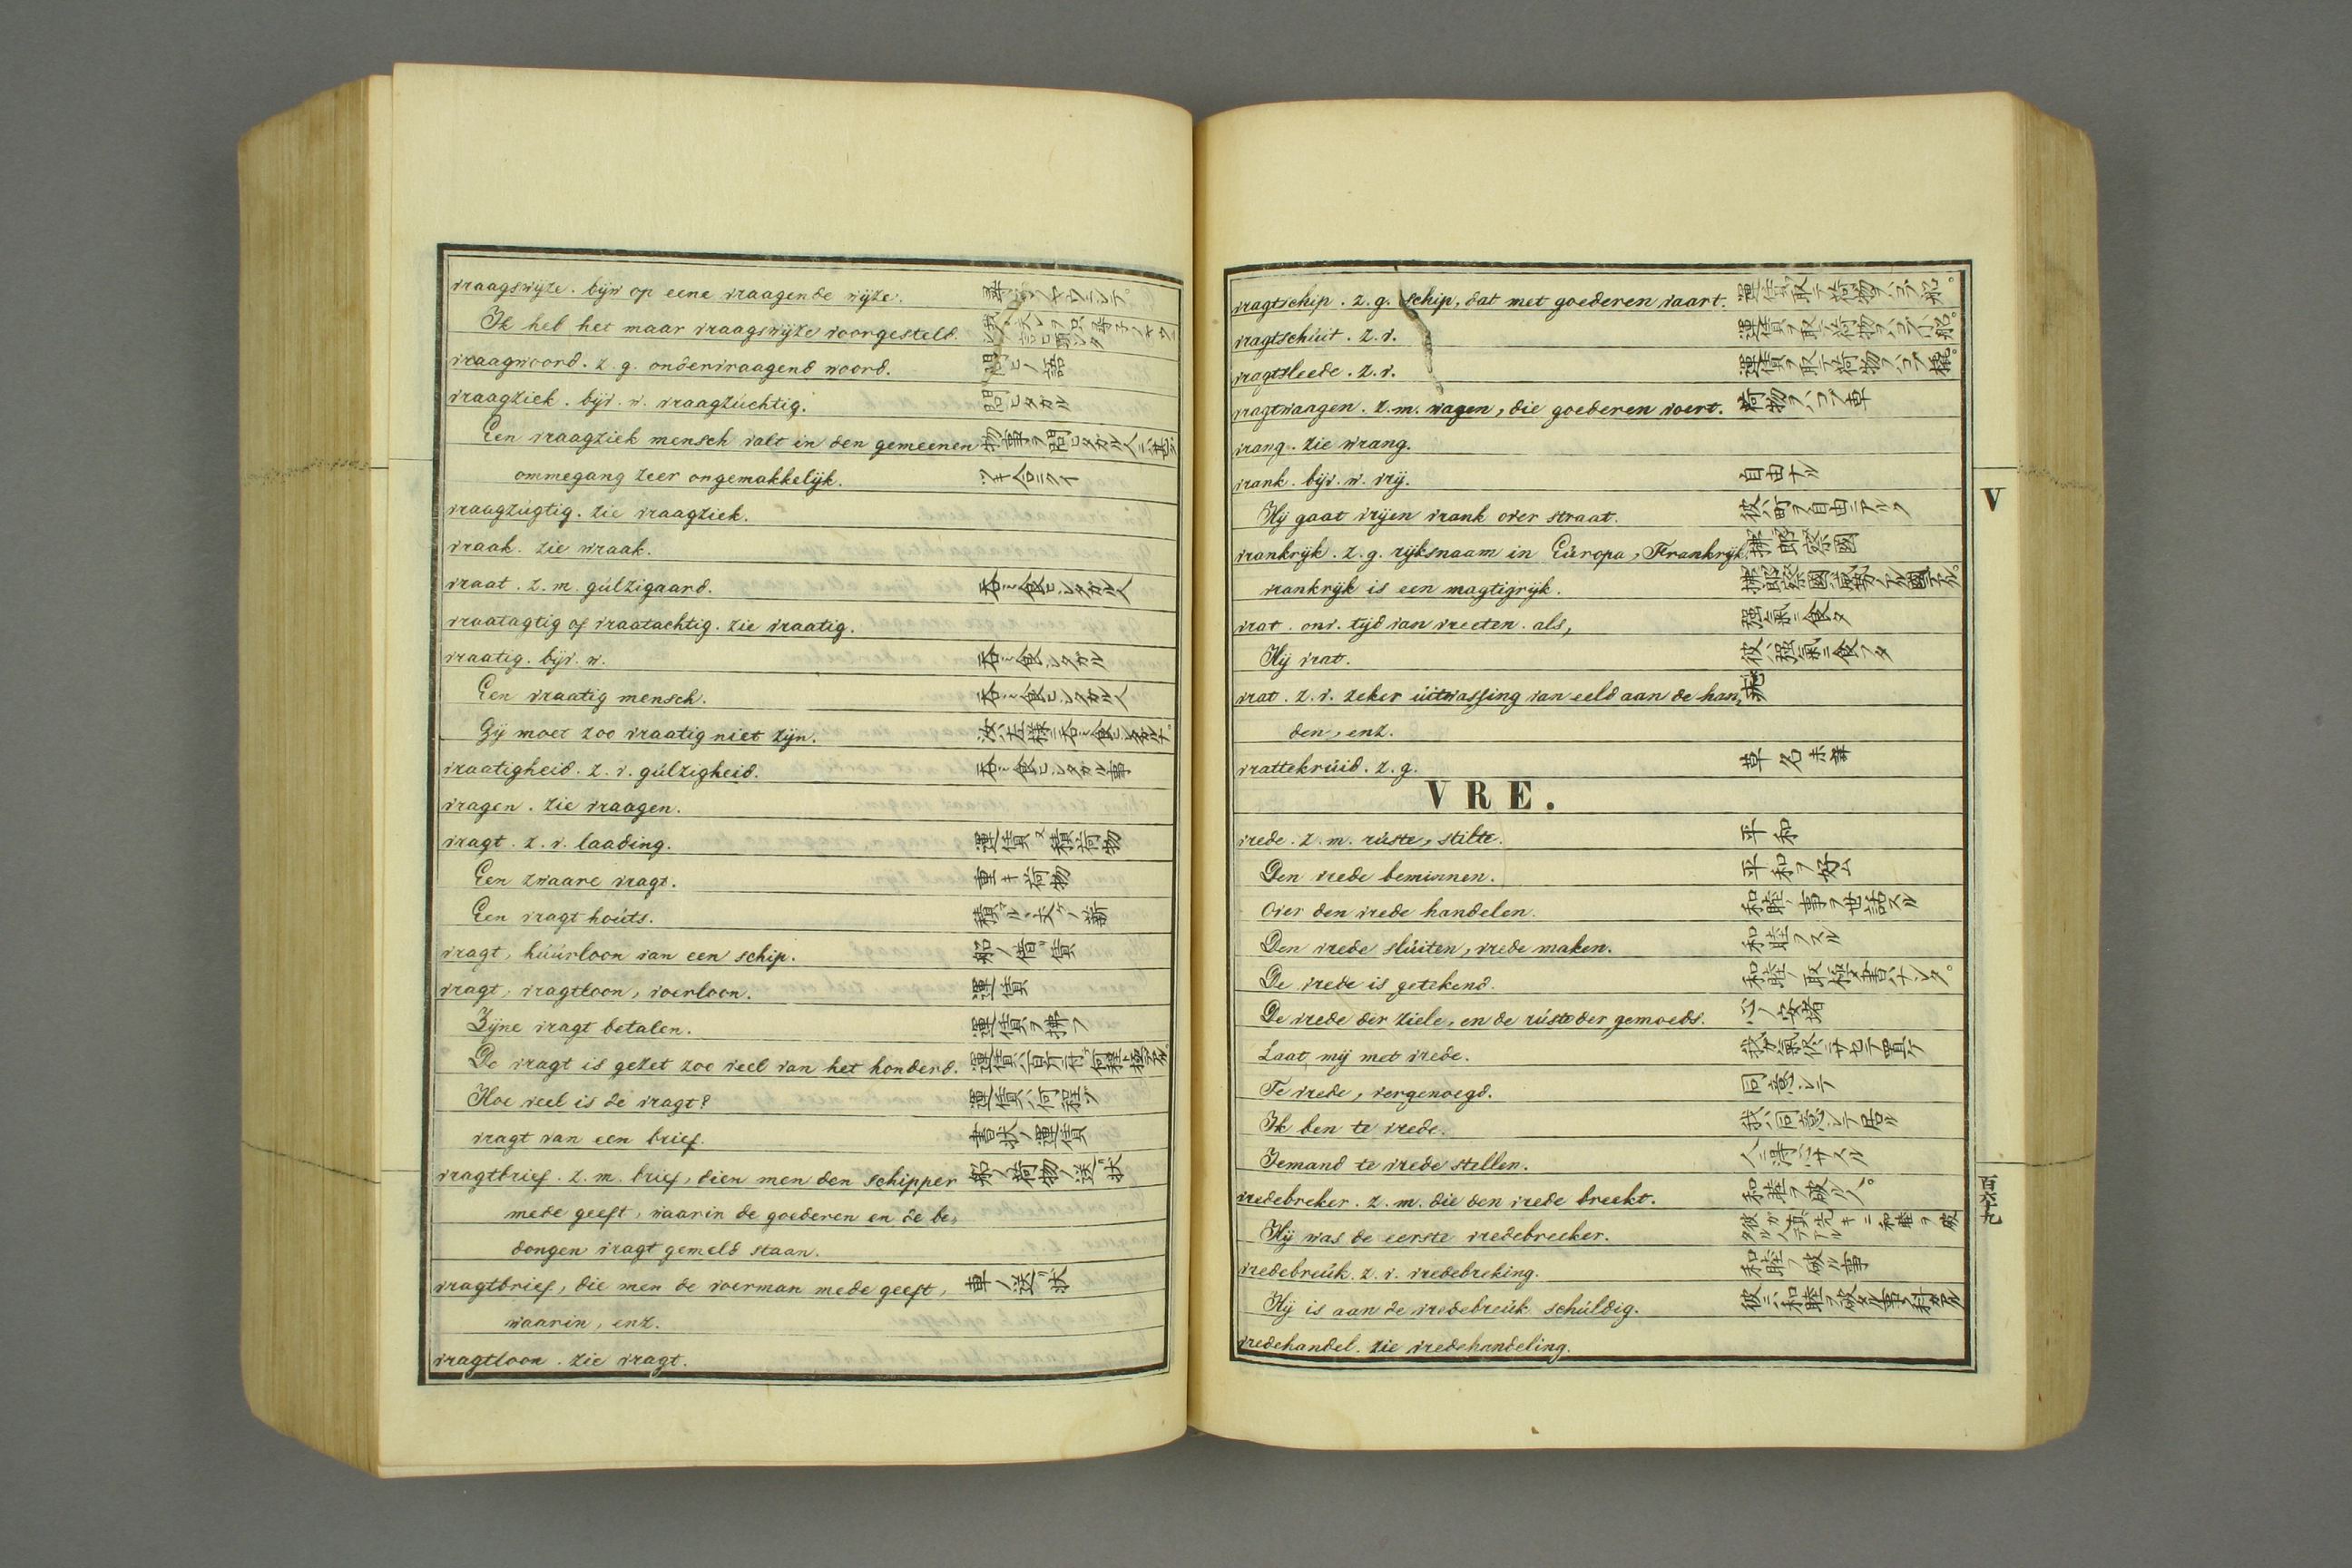 vraagswyze. bijw op eene vraagende wyze.
Ik heb het maar vraagswyze voorgesteld.
vraagwoord. z. g. ondervraagend woord. 問ヒノ語
vraagziek. bijv. w. vraagzúchtig. 問ヒタガル
Een vraagziek mensch valt in den gemeenen
ommegang zeer ongemakkelijk.
vraagzúgtig. zie vraagziek.
vraak. zie wraak.
vraat. z. m. gúlzigaard. 呑ミ食ヒシタガル人
vraatagtig of vraatachtig. zie vraatig.
vraatig. bijv. w. 呑ミ食ヒシタガル
Een vraatig mensch. 呑ミ食ヒシタガル人
Gij moet zoo vraatig niet zijn.
vraatigheid. z. v. gúlzigheid. 呑ミ食ヒシタガル事
vragen. zie vraagen.
vragt. z. v. laading. 運賃又積荷物
Een zwaare vragt. 重キ荷物
Een vragt hoúts.
vragt, húúrloon van een schip. 船ノ借賃
vragt, vragtloon, voerloon. 運賃
Zijne vragt betalen. 運賃ヲ拂フ
De vragt is gezet zoo veel van het honderd.
Hoe veel is de vragt? 運賃ハ何程ゾ
vragt van een brief. 書状ノ運賃
vragtbrief. z. m. brief, dien men den schipper 船ノ荷物ノ送リ状
mede geeft, waarin de goederen en de be„
dongen vragt gemeld staan.
vragtbrief, die men de voerman mede geeft, 車ノ送リ状
waarin, enz.
vragtloon. zie vragt.
vragtschip. z. g. schip, dat met goederen vaart. 運賃ヲ取テ荷物ヲハコブ船。
vragtschúit. z. v. 運賃ヲ取テ荷物ヲハコブ小船。
vragtsleede. z. v. 運賃ヲ取テ荷物ヲハコブ橇。
vragtwaagen. z. m. wagen, die goederen voert. 荷物ヲハコブ車
vrang. zie wrang.
vrank. bijv. w. vrij. 自由ナル
Hij gaat vrijen vrank over straat. 彼ハ町ヲ自由ニアルク
vrankryk. z. g. ryksnaam in Eúropa, Frankryk. 拂郎察國
vrankryk is een magtigryk.
vrat. onv. tyd van vreeten. als, 强氣ニ食タ
Hij vrat. 彼ハ强氣ニ食フタ
vrat. z. v. zeker úitwassing van eeld aan de han„
den, enz.
vrattekrúid. z. g.
VRE.
vrede. z. m. rúste, stilte. 平和
Den vrede beminnen. 平和ヲ好ム
Over den vrede handelen. 和睦ノ事ヲ世話スル
Den vrede slúiten, vrede maken. 和睦ヲスル
De vrede is getekend.
De vrede der ziele, en de rúste der gemoeds. 心ノ安堵
Laat mij met vrede.
Te vrede, vergenoegd. 同意シテ
Ik ben te vrede. 我ハ同意シテ居ル
Iemand te vrede stellen.
vredebreker. z. m. die den vrede breekt. 和睦ヲ破ル人。
Hij was de eerste vredebreeker. 彼ガ真先キニ和睦ヲ破
タル人デアル
vredebreúk. z. v. vredebreking. 和睦ヲ破ル事
Hij is aan de vredebreúk schúldig.
vredehandel. zie vredehandeling.
V
百六十九